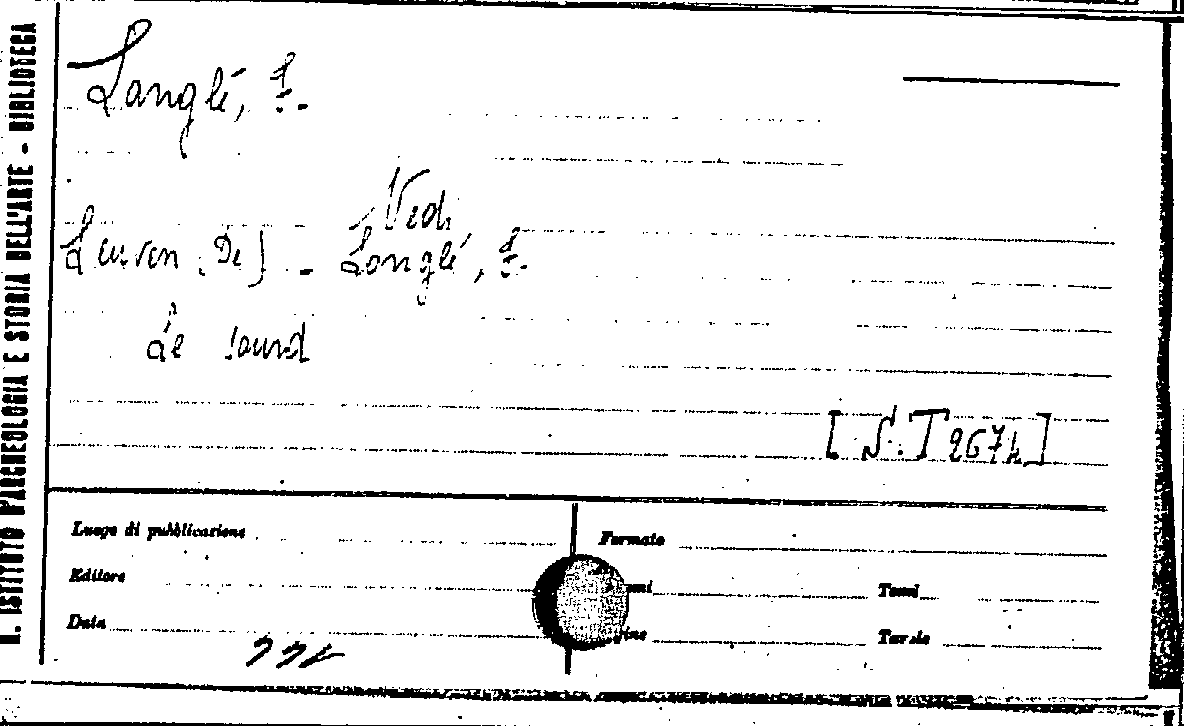 R. ISTITUTO D'ARCHEOLOGIA E STORIA DELL'ARTE - BIBLIOTECA
Langlé, F.
Vedi
Leuven [De] - Langlé, F.
Le sourd
[S. T 267 h]
Luogo di pubblicazione
Formato
Editore
Tomi
Data
Tavole